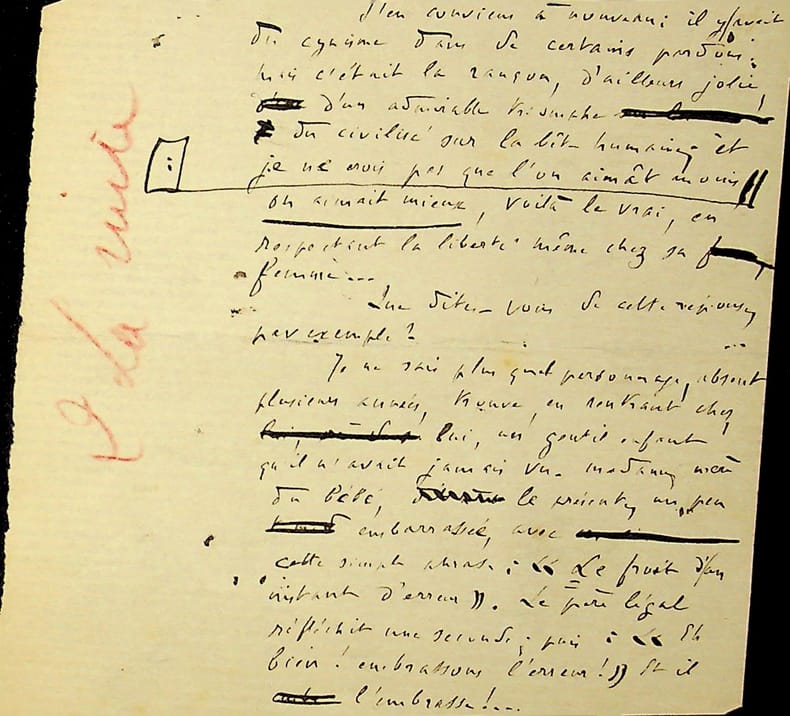 J'en conviens à nouveau; il y avait
du cynisme dans de certains pardons;
mais c'était la rançon, d'ailleurs jolie,
d'un admirable triomphe
du civilisé sur la bête humaine, et
je ne crois pas que l'on aimât moins
:
on aimait mieux, voilà le vrai, en
respectant la liberté même chez sa
femme...
Que dites-vous de cette réponse,
par exemple?
Je ne sais plus quel personnage, absent
plusieurs années, trouve, en rentrant chez
lui, un gentil enfant
qu'il n'avait jamais vu. Madame, mère
du bébé, le présente, un peu
embarrassée, avec
cette simple phrase: « Le fruit d'un
instant d'erreur ». Le père légal
réfléchit une seconde; puis: « Eh
bien! embrassons l'erreur! » Et il
l'embrasse!...
La